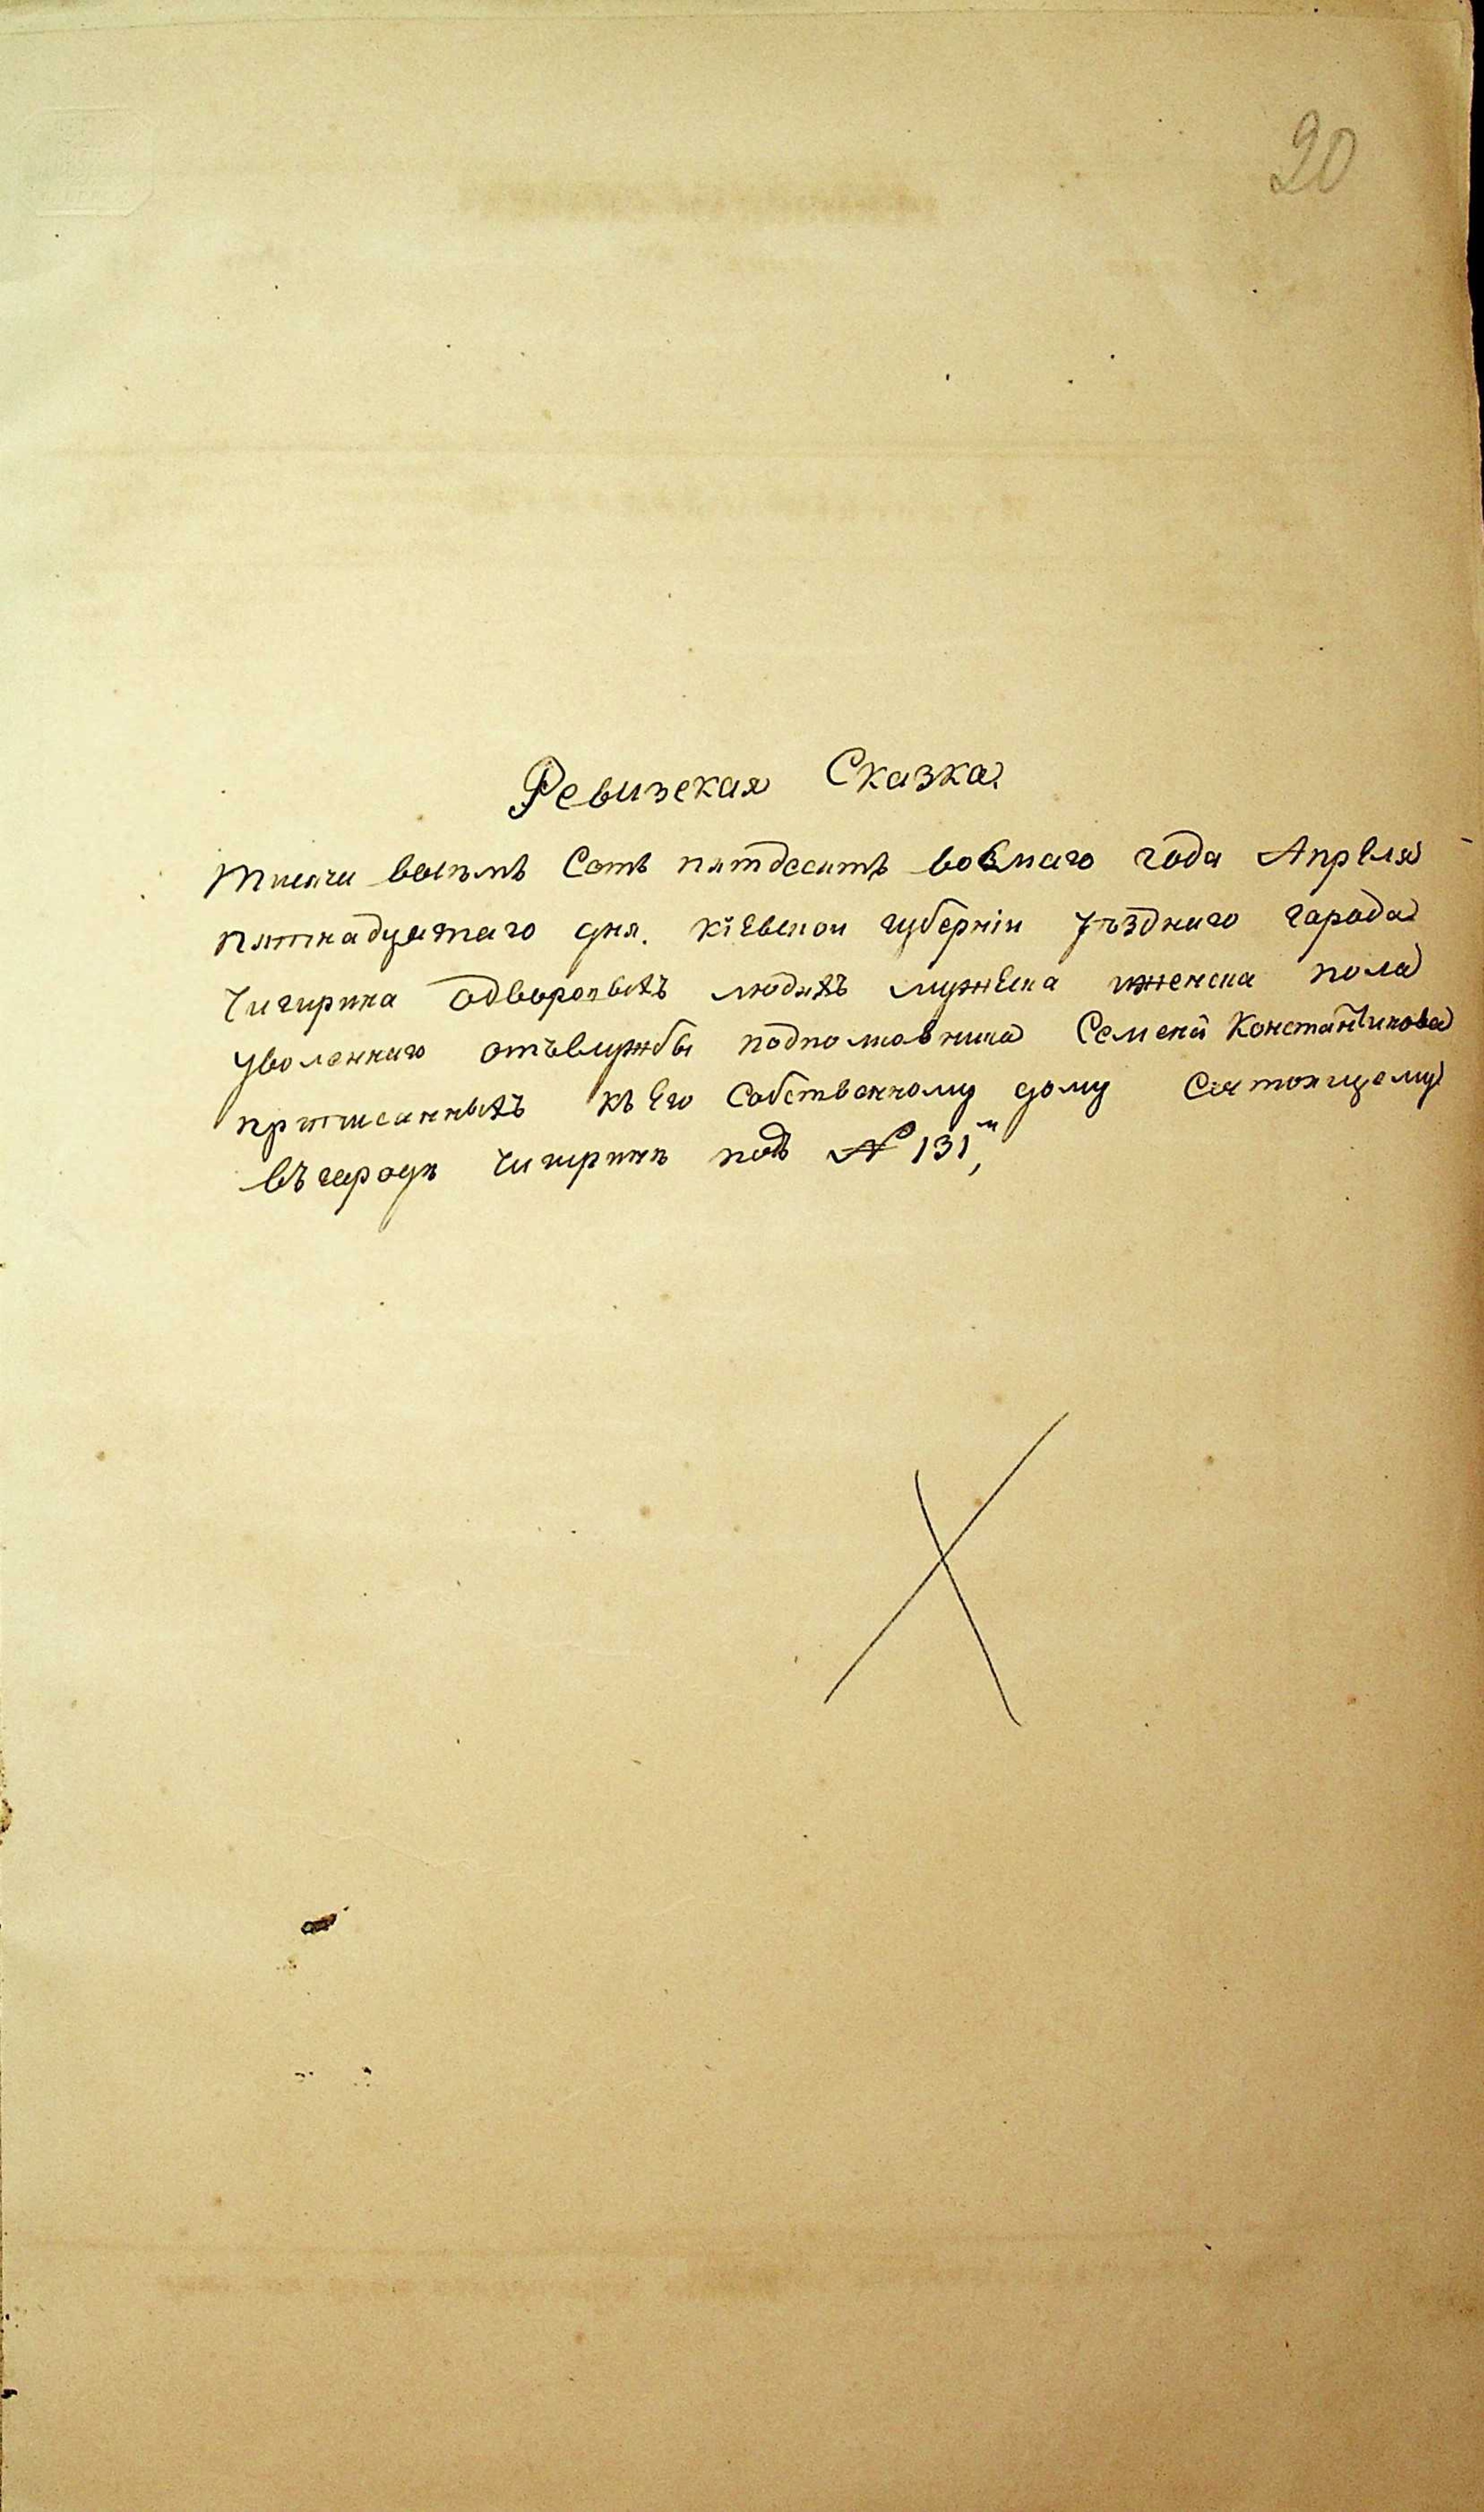 20
Ревизская Сказка.
Тисячи восемь Сотъ пятдесятъ восмаго года Апреля
пятнадцатаго дня. Кіевской губерніи Уѣзднаго Города
Чигирина Одворовыхъ людяхъ мужеска иженска пола
Уволеннаго отъвлужбы подполковника Семена Константинова
приписанныхъ къ Его Собственному дому Состоящему
въгородѣ Чигиринѣ подъ № 131м,